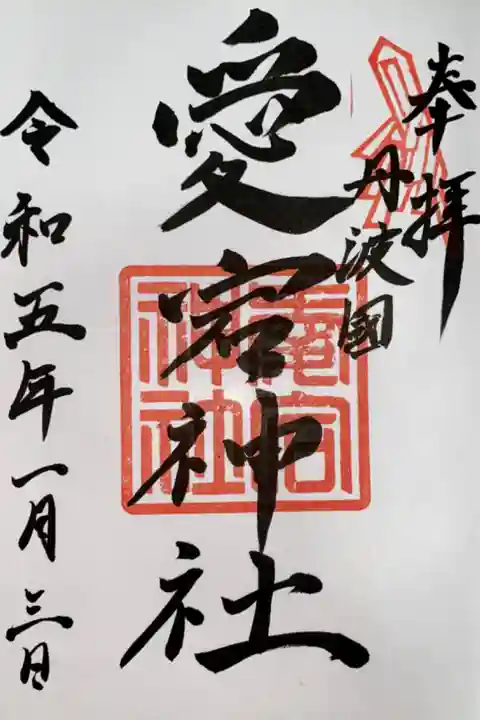 奉拝
丹波國
愛宕神社
愛宕
神社
令和五年一月三日